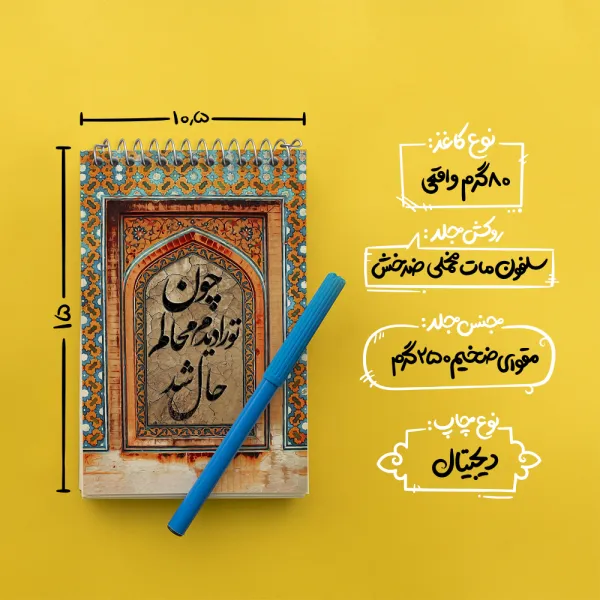 ۱۰٫۵
۱۵
چون
تو را دیدم محالم
حال شد
نوع کاغذ:
۸۰ گرم واقعی
روکش جلد:
سلفون مات مخملی ضدخش
جنس جلد:
مقوای ضخیم ۲۵۰ گرم
نوع چاپ:
دیجیتال